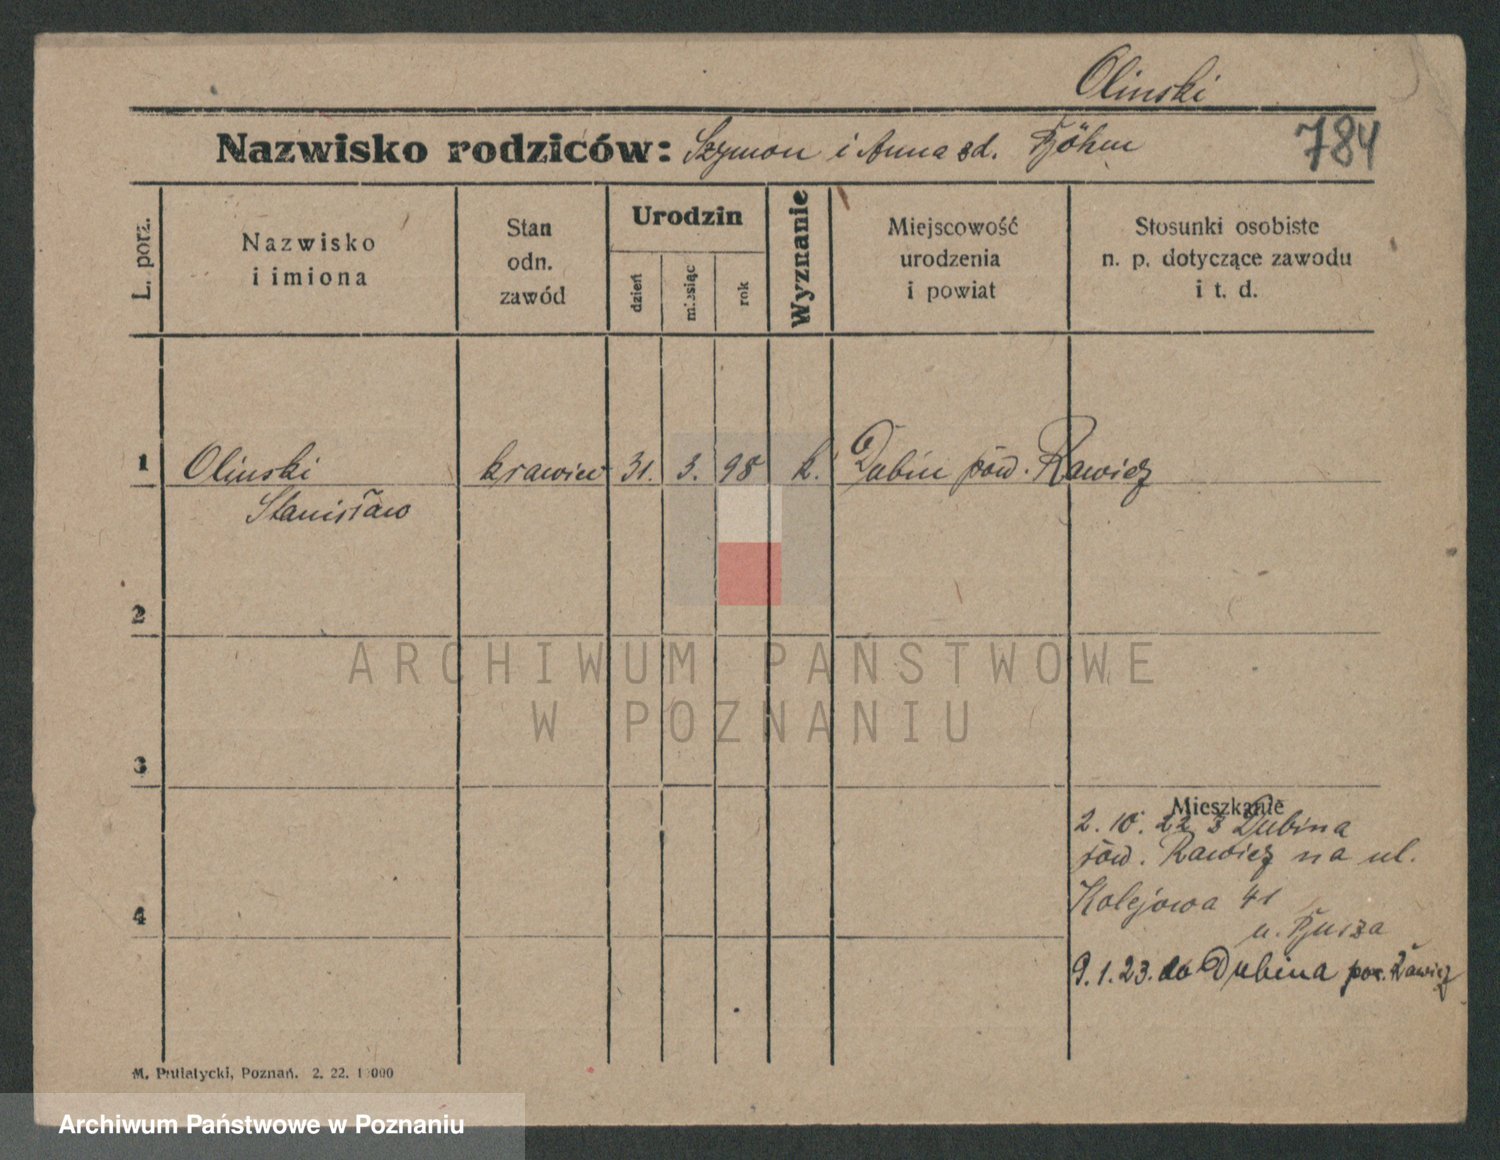 Olinski
Nazwisko rodziców: Szymon i Anna zd. Böhm 784
L. porz.
Nazwisko
i imiona
Stan
odn.
zawód
Urodzin
dzień
miesiąc
rok
Wyznanie
Miejscowość
urodzenia
i powiat
Stosunki osobiste
n. p. dotyczące zawodu
i t. d.
1 Olinski krawiec 31. 3. 98 k. Dubin pow. Rawicz
Stanisław
2
ARCHIWUM PAŃSTWOWE
W POZNANIU
3
Mieszkanie
2. 10. 22 z Dubina
pow. Rawicz na ul.
4 Kolejowa 41
u.
9.1.23. do Dubina pow. Rawicz
M. Putiatycki, Poznań. 2. 22. 000
Archiwum Państwowe w Poznaniu